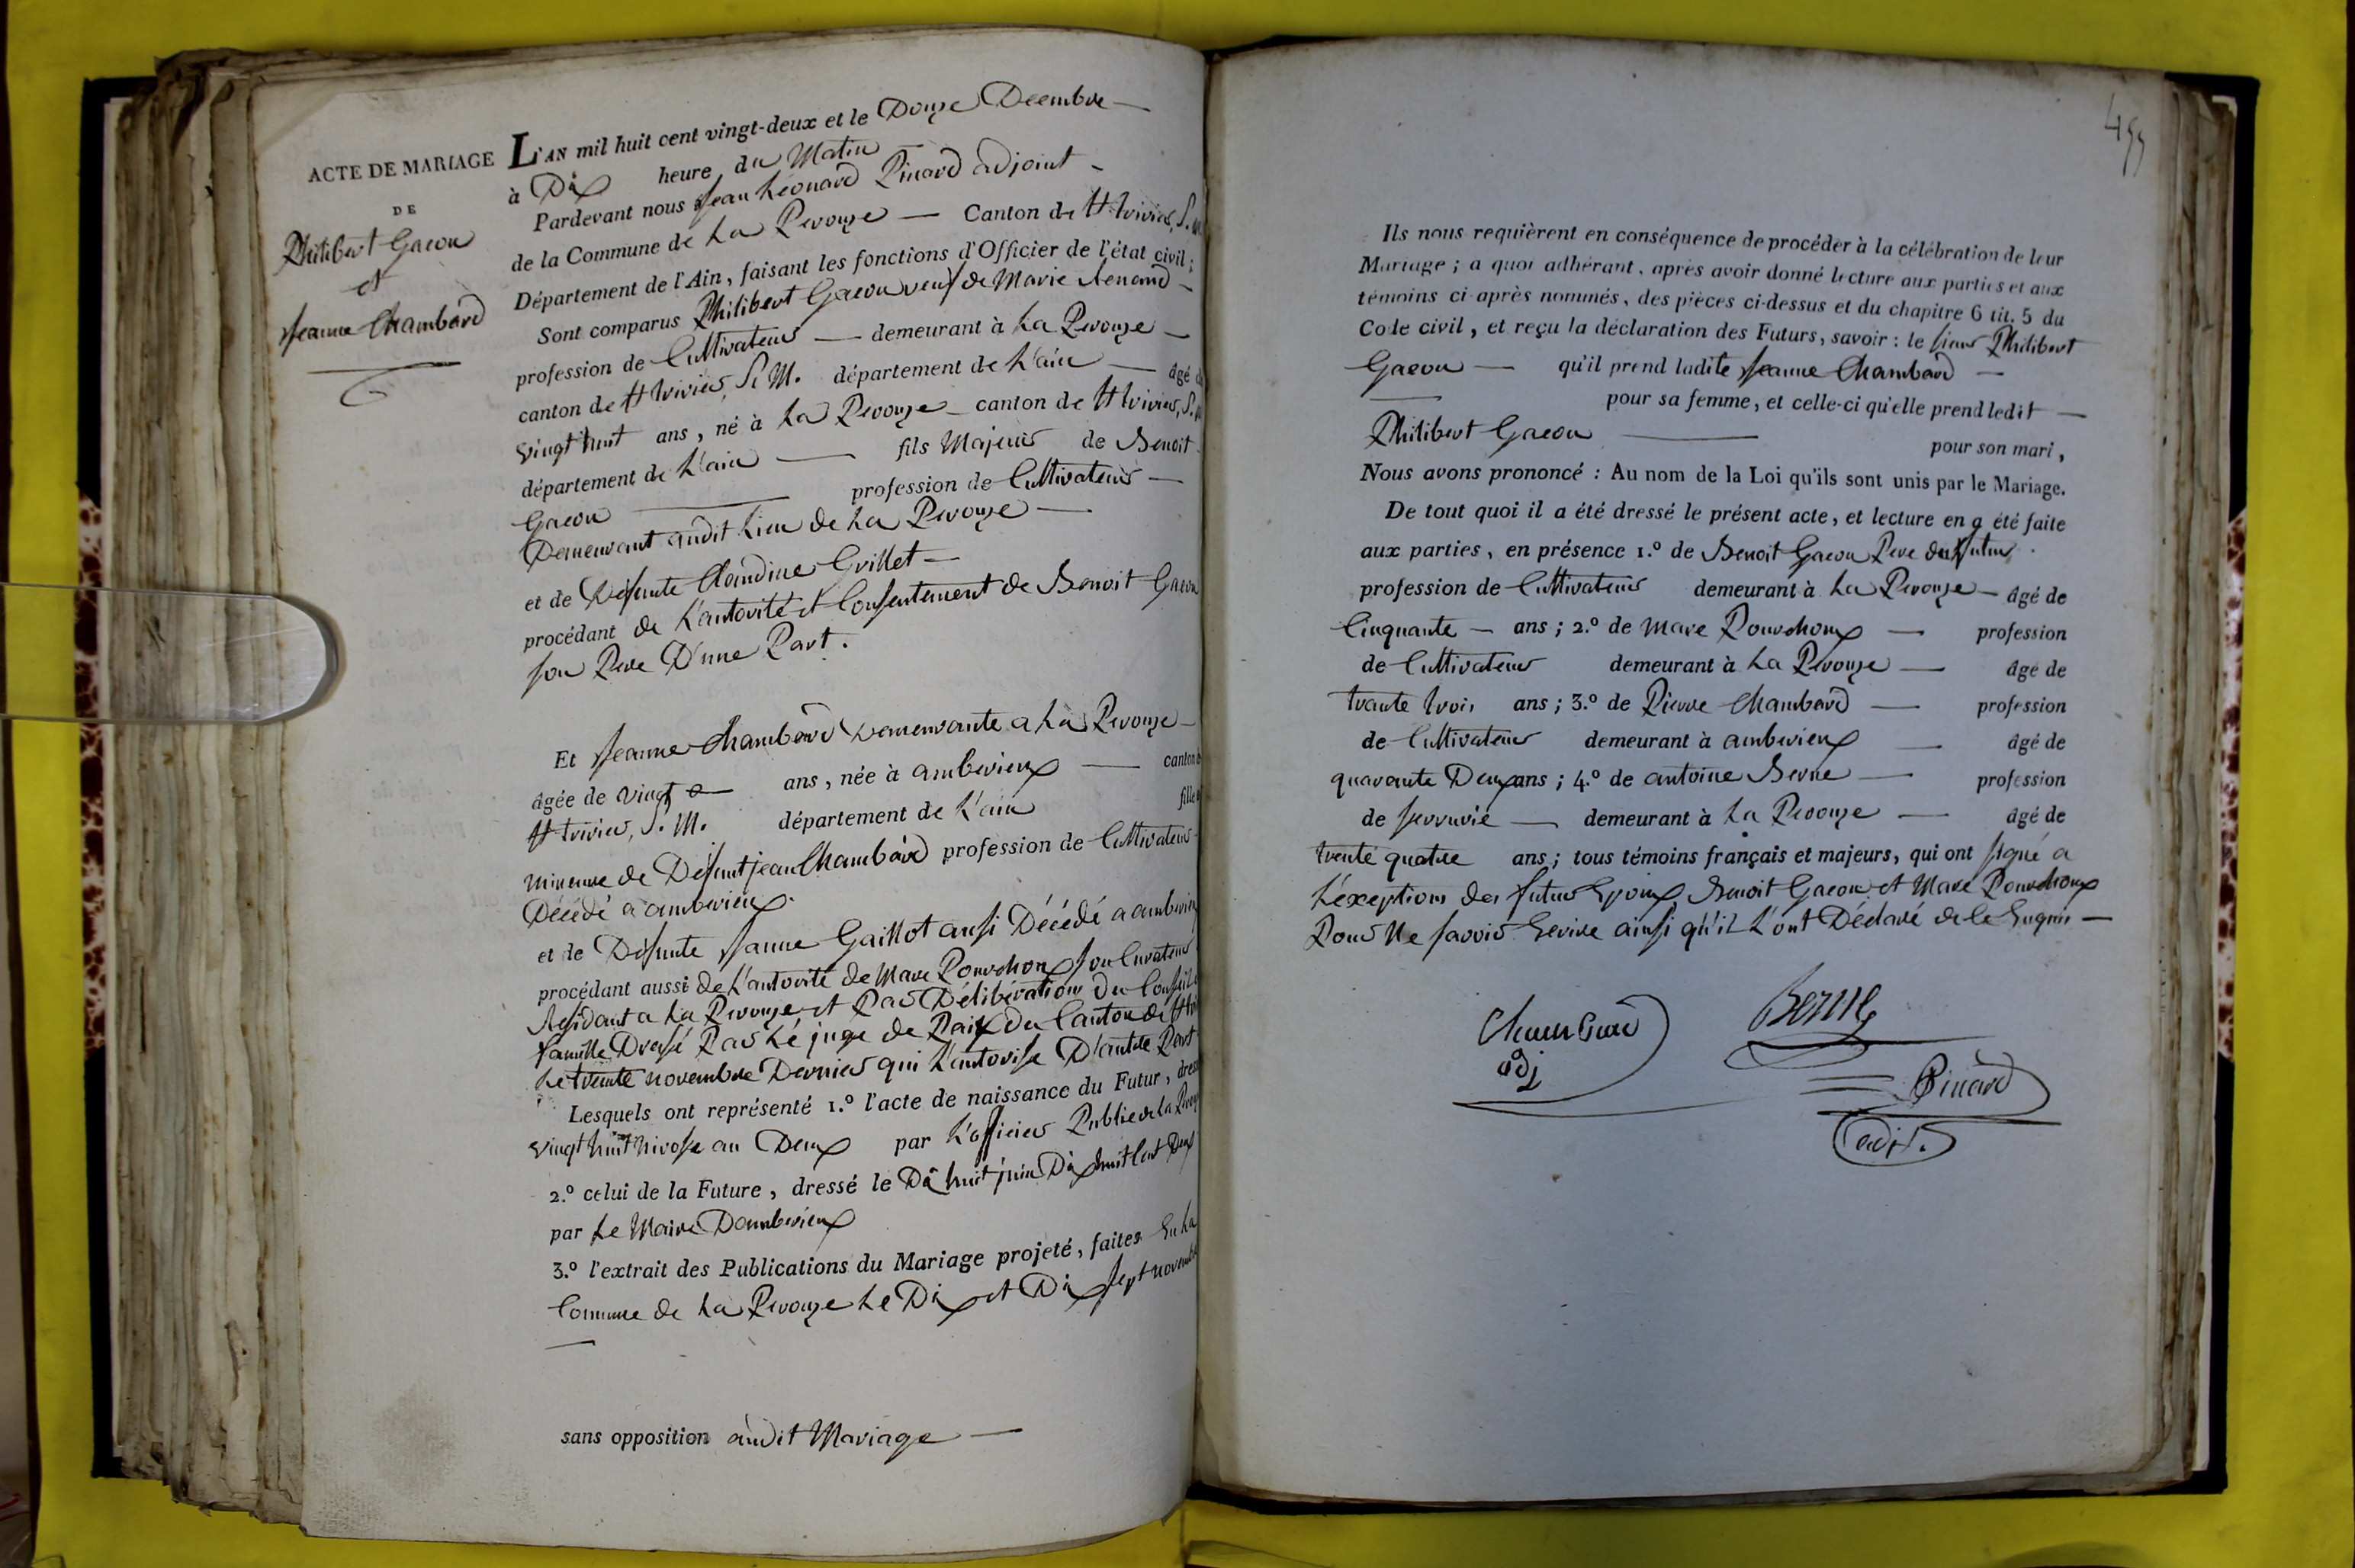 ACTE DE MARIAGE
DE
Philibert Gacon
et
Jeanne Chambard
L'AN mil huit cent vingt-deux et le Douze Décembre
à Dix heure du Matin
Pardevant nous Jean Léonard Pinard adjoint
de la Commune de La Perouze Canton de St trivier, S.
Département de l'Ain, faisant les fonctions d'Officier de l'état civil;
Sont comparus Philibert Gacon veuf de Marie Renand
profession de Cultivateur demeurant à La Perouze
canton de St trivier, S. M. département de L'ain âgé de
vingt huit ans, né à La Perouze canton de St trivier, S. M
département de L'ain fils Majeur de Benoit
Gacon profession de Cultivateur
Demeurant audit Lieu de La Perouze
et de Défunte Claudine Grillet
procédant de L'autorité et Consentement de Benoit Gacon
son Pere D'une Part.
Et Jeanne Chambard Demeurante a La Perouze
âgée de vingt ans, née à amberieux canton de
St trivier, S. M. département de L'ain fille
mineure de Défunt jean Chambard profession de Cultivateur
Décédé a amberieux.
et de Défunte Jeanne Gaillot aussi Décédé a amberieux
procédant aussi de L'autorité de Marc Pourchoux son Curateur
Residant a La Perouze et Par Délibération du Conseil de
famille Dressé Par Le juge de Paix du Canton de St tri
Le trente novembre Dernier qui L'autorise D'autre Part
Lesquels ont représenté 1.º l'acte de naissance du Futur, dressé
vingt huit Nivose an Deux par L'officier Public de La Perouze
2.º celui de la Future, dressé le Dix huit juin Dix huit Cent Deux
par Le Maire Damberieux
3.º l'extrait des Publications du Mariage projeté, faites En La
Commune de La Perouze Le Dix et Dix sept novembre
sans opposition audit Mariage
Ils nous requièrent en conséquence de procéder à la célébration de leur
Mariage; a quoi adhérant, après avoir donné lecture aux parties et aux
témoins ci-après nommés, des pièces ci-dessus et du chapitre 6 tit. 5 du
Code civil, et reçu la déclaration des Futurs, savoir: le sieur Philibert
Gacon qu'il prend ladite Jeanne Chambard
pour sa femme, et celle-ci qu'elle prend ledit
Philibert Gacon pour son mari,
Nous avons prononcé: Au nom de la Loi qu'ils sont unis par le Mariage.
De tout quoi il a été dressé le présent acte, et lecture en a été faite
aux parties, en présence 1.º de Benoit Gacon Pere du futur
profession de Cultivateur demeurant à La Perouze âgé de
Cinquante ans; 2.º de Marc Pourchoux profession
de Cultivateur demeurant à La Perouze âgé de
trante trois ans; 3.º de Pierre Chambard profession
de Cultivateur demeurant à amberieux âgé de
quarante Deux ans; 4.º de antoine Berne profession
de serrurié demeurant à La Perouze âgé de
trente quatre ans; tous témoins français et majeurs, qui ont signé a
L'exception des futurs Epoux, Benoit Gacon et Marc Pourchoux
Pour Ne savoir Ecrire ainsi qu'il L'ont Déclaré de ce Enquis
Chambard
adj
Berne
Pinard
adjt.